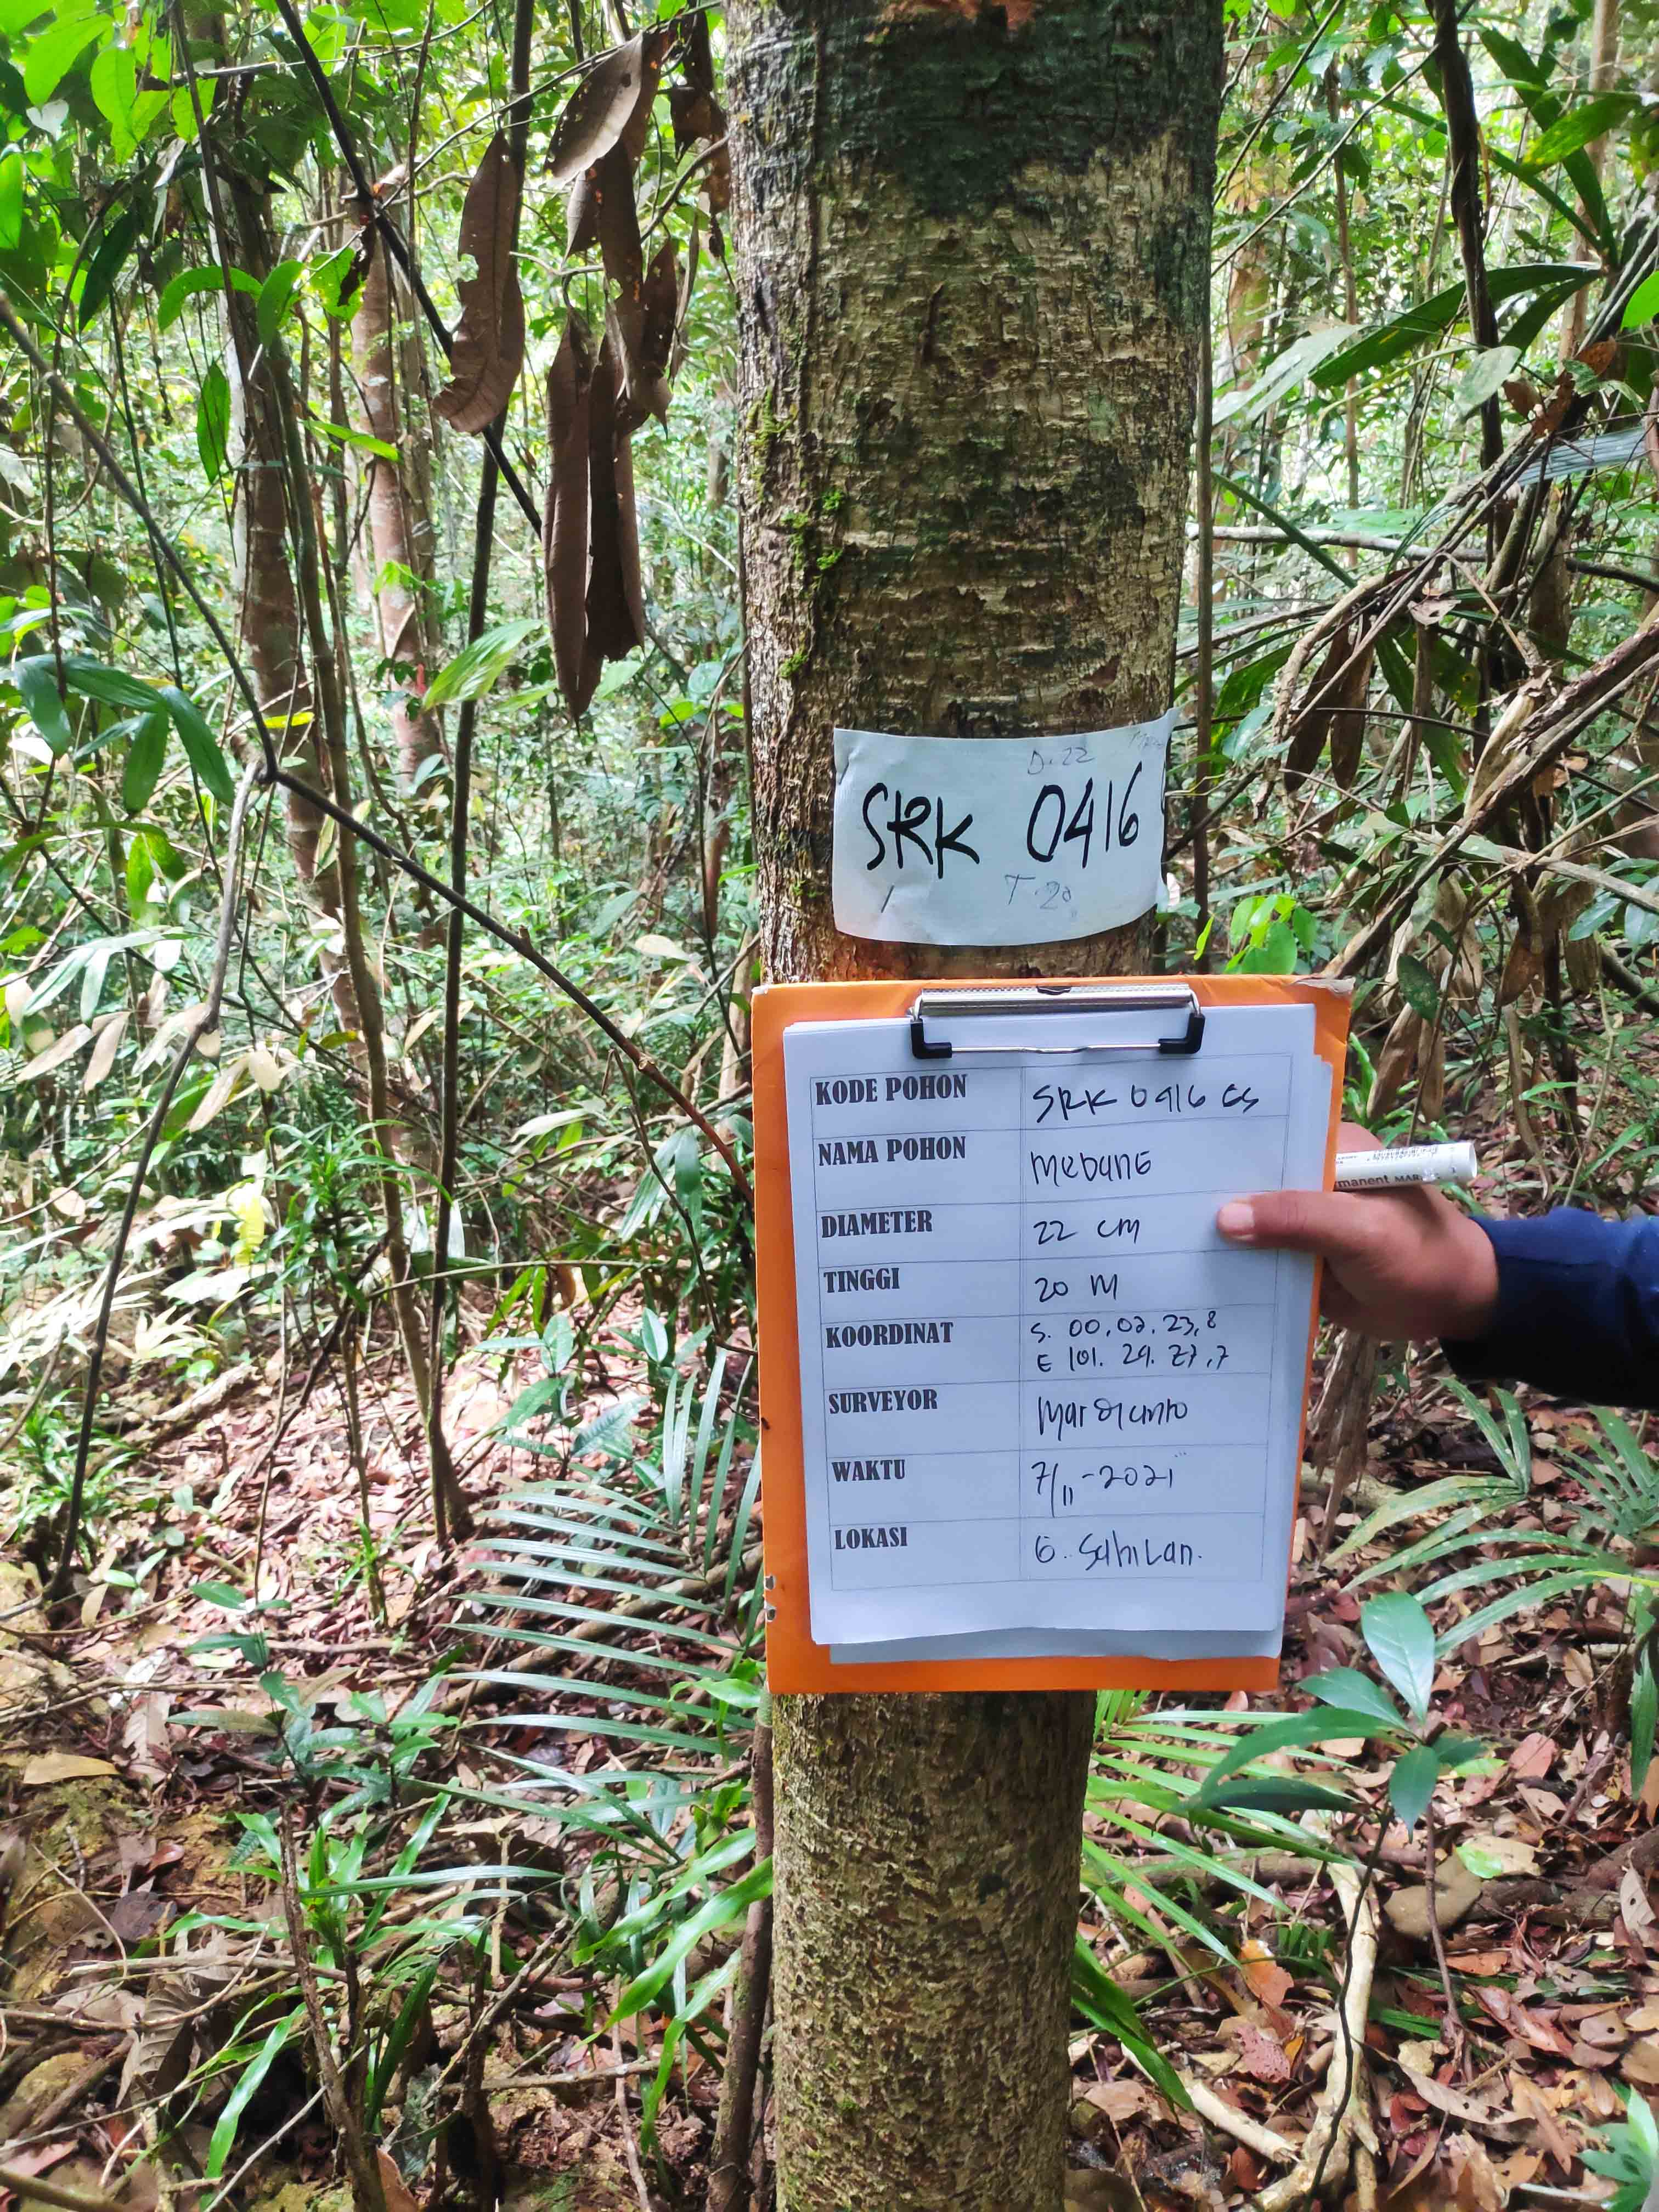 D. 22
SRK 0416
T. 20
KODE POHON SRK 0416 GS
NAMA POHON Mebung
DIAMETER 22 cm
TINGGI 20 M
KOORDINAT S. 00.02.23,8
E 101. 29. 27,7
SURVEYOR Mardianto
WAKTU 7/11-2021
LOKASI G. Sahilan.
manent MAR